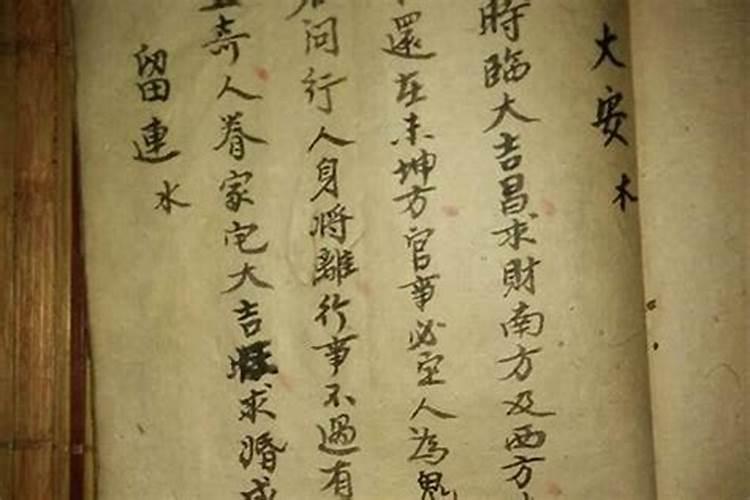 大安木
時臨大吉昌求財南方及西方
還在未坤方官事必定人為鬼
問行人身將離行事不過有
奇人眷家宅大吉旺求婚成
留連水